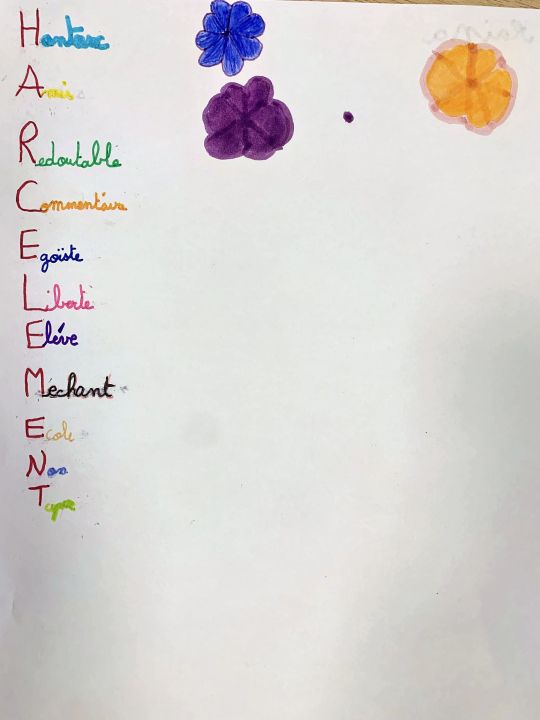 Amis
Redoutable
Commentaire
Egoïste
Liberté
Elève
Méchant
Ecole
Non